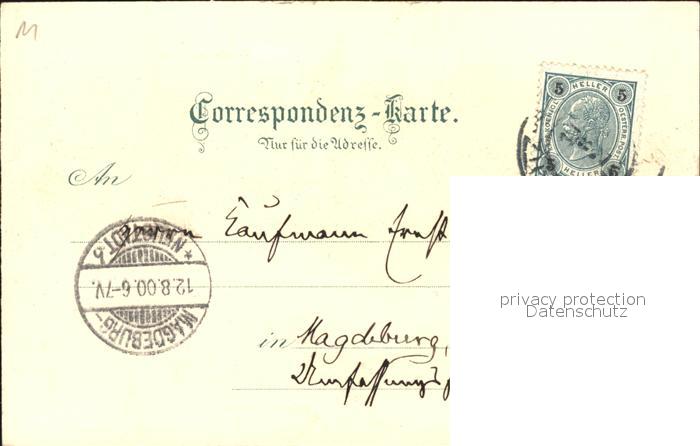 M
Correspondenz-Karte.
Nur für die Adresse.
5 HELLER 5
An
Herrn Kaufmann Ernst
MAGDEBURG-NEUSTADT *
12.8.00.6-7V.
in Magdeburg,
privacy protection
Datenschutz